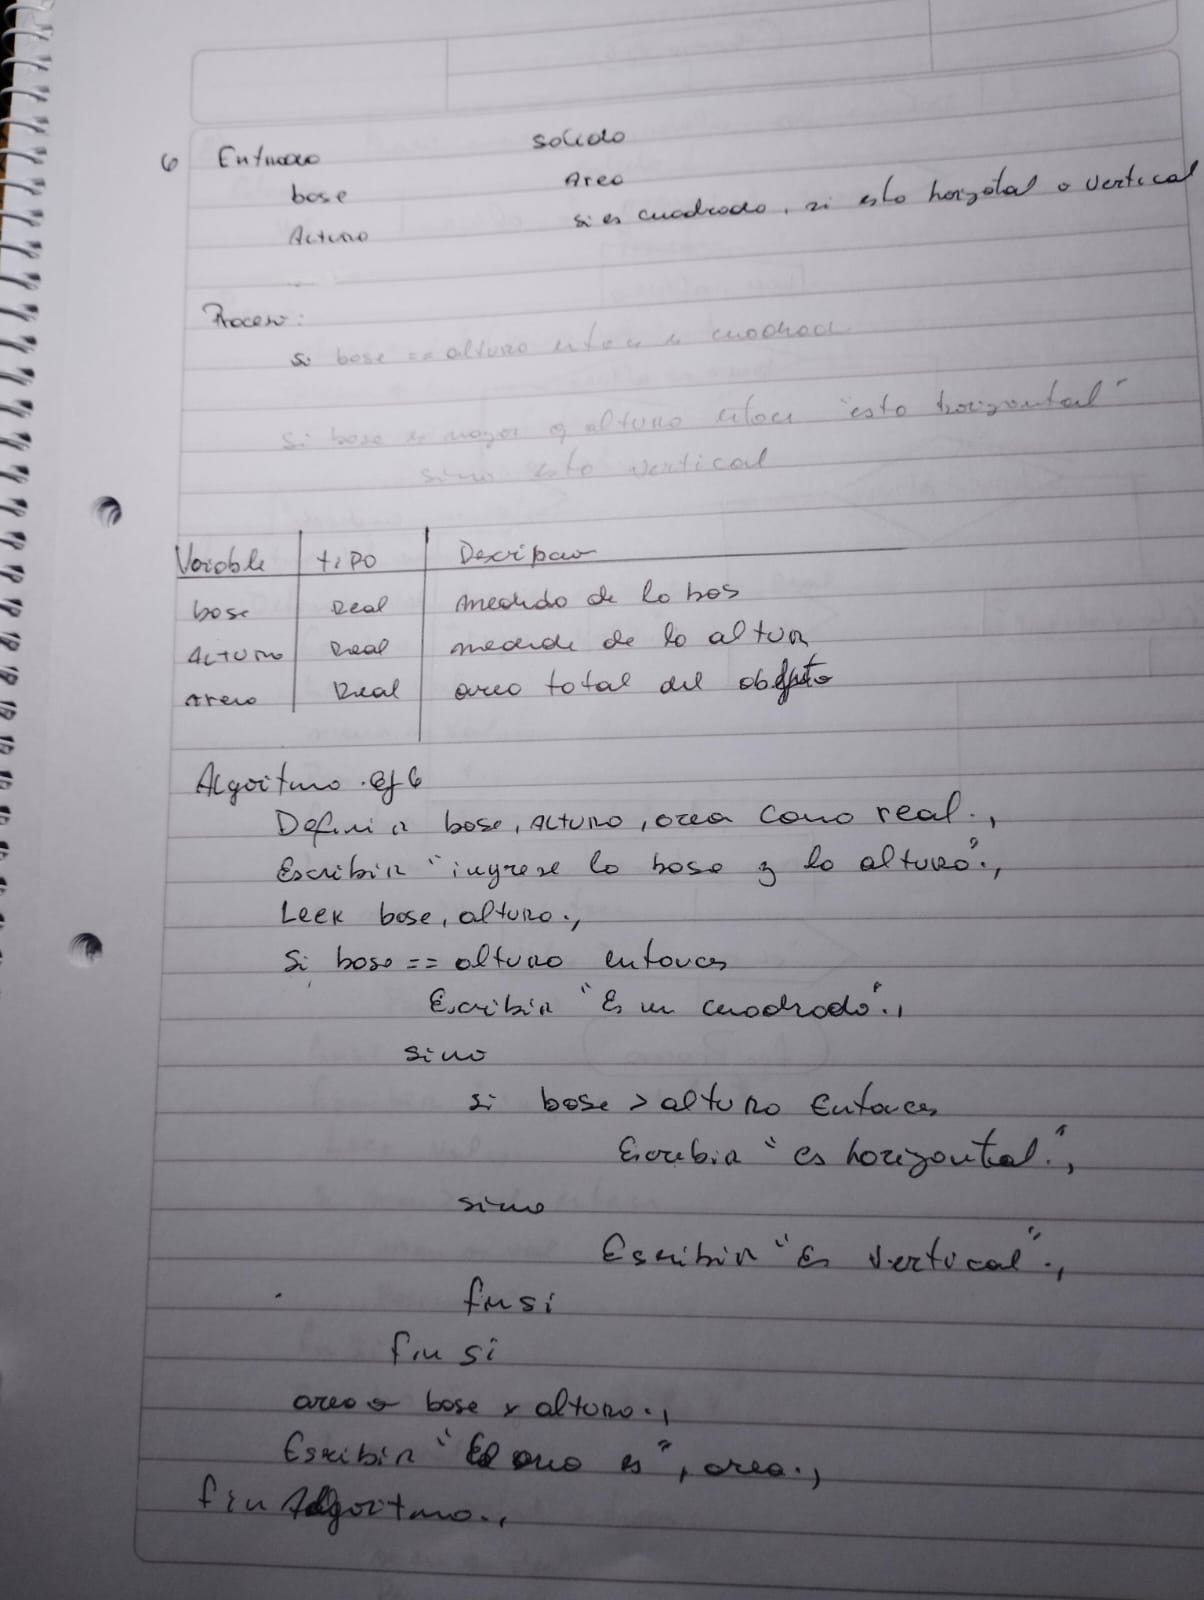 6 Entrada solido
base Area
Altura si es cuadrado, si esta horizotal o vertical
Proceso:
si base == altura es cuadrad
si base es mayor q altura "esta horizontal"
sino esta vertical
Variable tipo Descripcion
base Real medida de la bas
Altura Real medida de la altura
Area Real area total del objeto
Algoritmo ej 6
Definir base, Altura, area como real.,
Escribir "ingrese la base y la altura".,
Leer base, altura.,
Si base == altura entonces
Escribir "Es un cuadrado".,
sino
si base > altura Entonces
Escribir "es horizontal".,
sino
Escribir "Es vertical".,
finsi
fin si
area ← base x altura.,
Escribir "El area es", area.,
fin Algoritmo.,